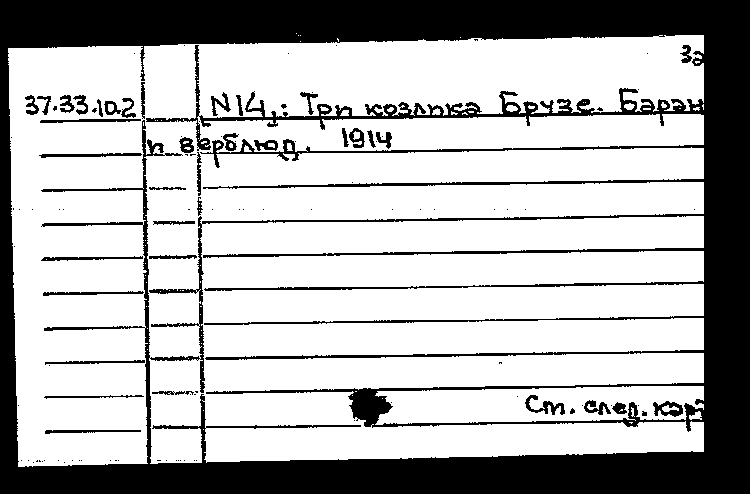 3а
37.33.10.2 N 14,: Три козлика Брузе. Баран
и верблюд. 1914
См. след. кар